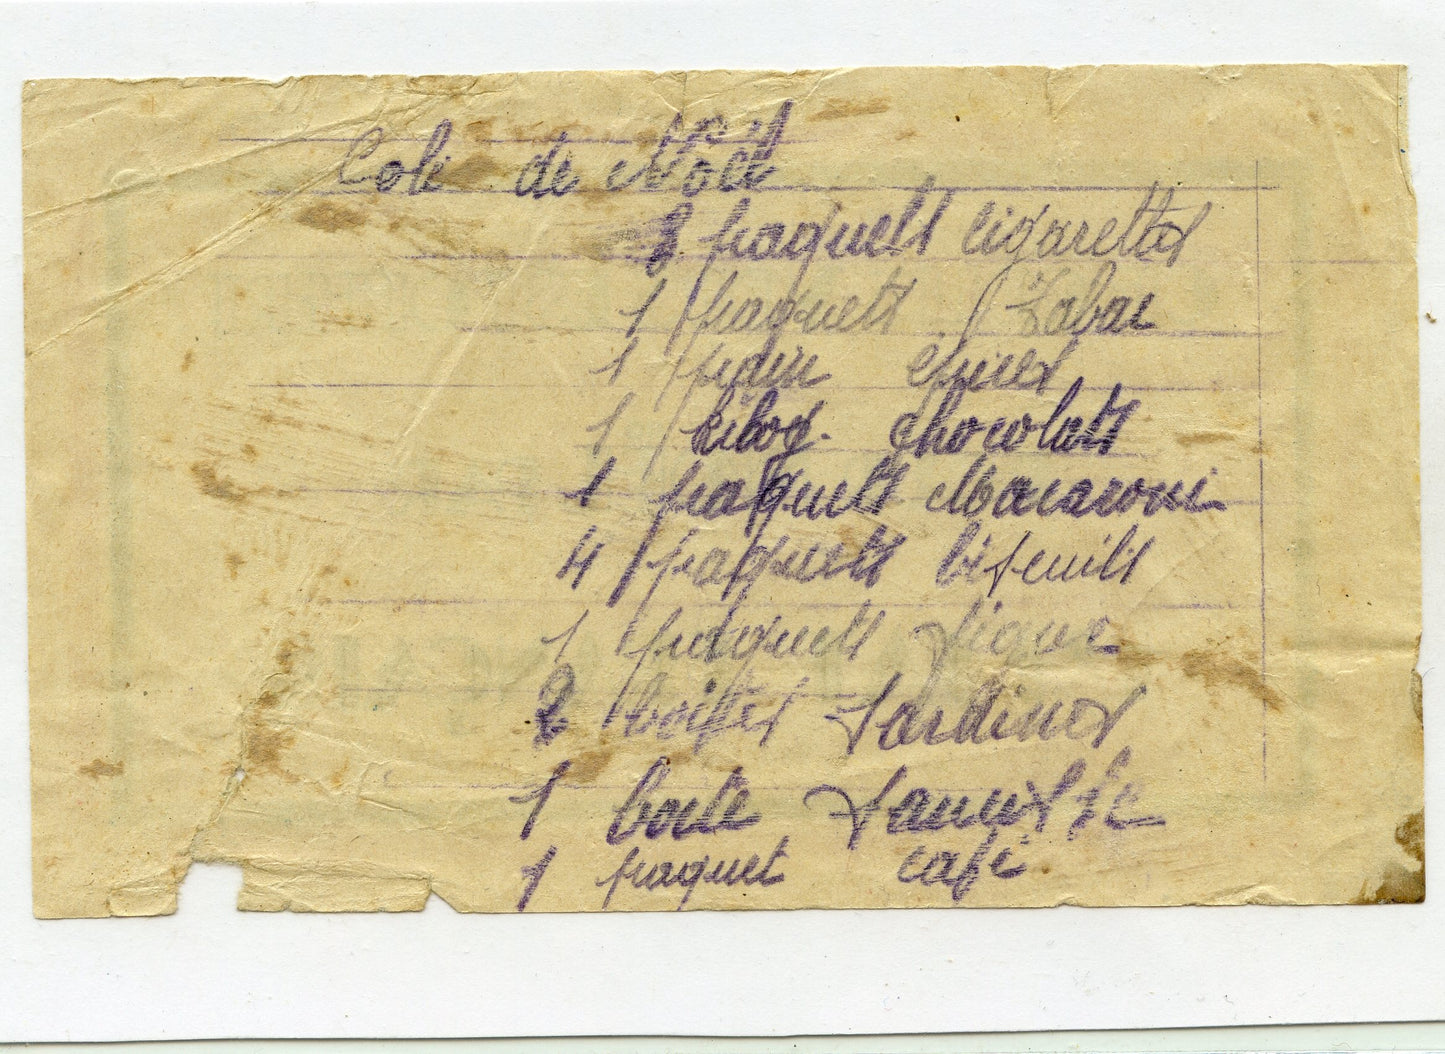 Coli de Noël
paquett cigarettes
1 paquett Tabac
1 pain epices
1 kilog. chocolatt
1 paquett Macaroni
4 paquett bifcuilt
1 paquett figue
2 boittes Sardines
1 boite
1 paquet café